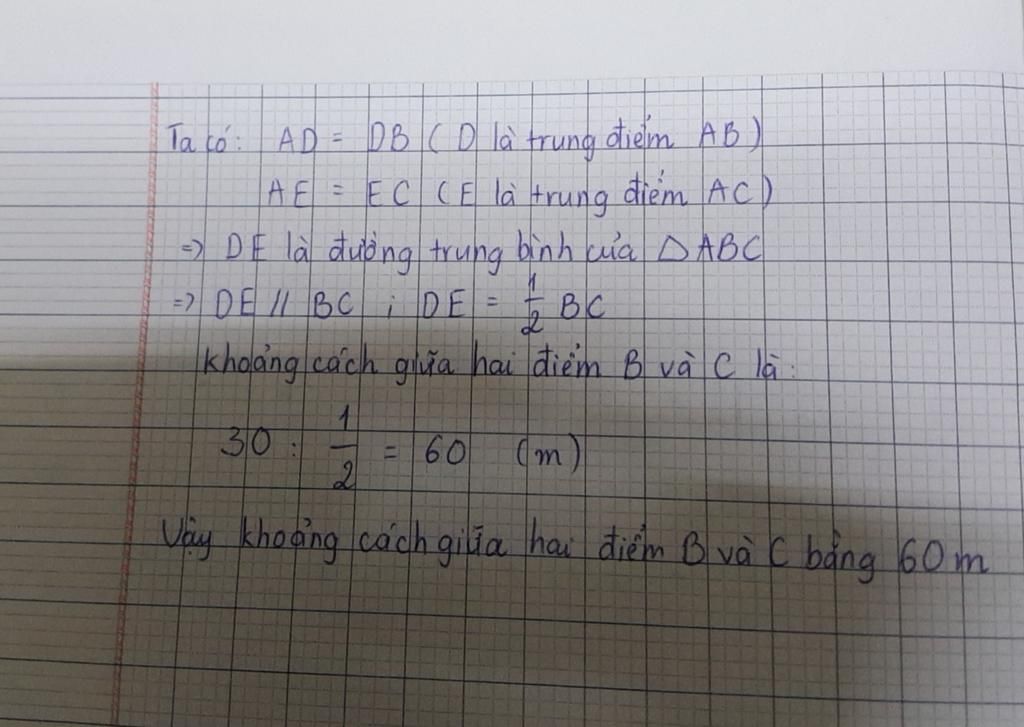 Ta có: AD = DB ( D là trung điểm AB )
AE = EC ( E là trung điểm AC )
=> DE là đường trung bình của △ABC
=> DE // BC ; DE = 1/2 BC
Khoảng cách giữa hai điểm B và C là:
30 : 1/2 = 60 (m)
Vậy khoảng cách giữa hai điểm B và C bằng 60 m